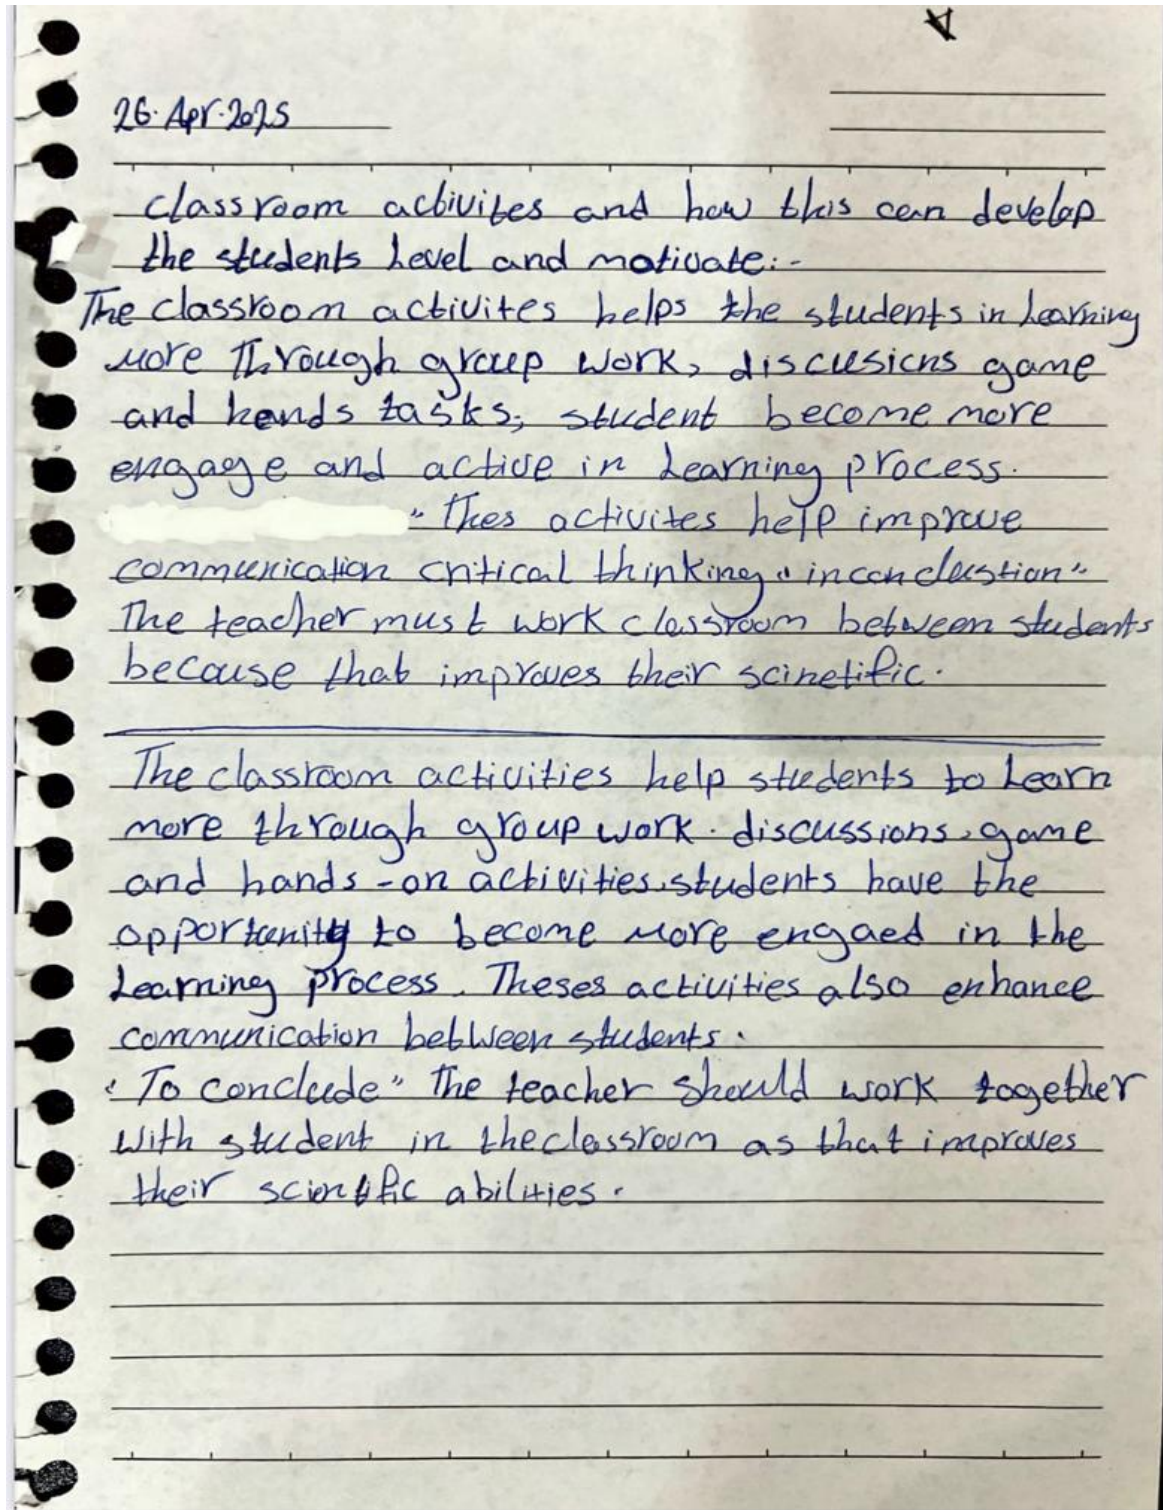 A
26. Apr. 2025
classroom activites and how this can develop
the students Level and motivate:-
The classroom activites helps the students in Learning
more Through group work, discusions game
and hands tasks, student become more
engage and active in Learning process.
" Thes activites help improve
communication critical thinking " inconclustion "
The teacher must work classroom between students
because that improves their scinetific.
The classroom activities help students to Learn
more through group work. discussions, game
and hands-on activities. students have the
opportunity to become more engaed in the
Learning process. Theses activities also enhance
communication between students.
" To conclude " The teacher should work together
with student in the classroom as that improves
their scientific abilities.